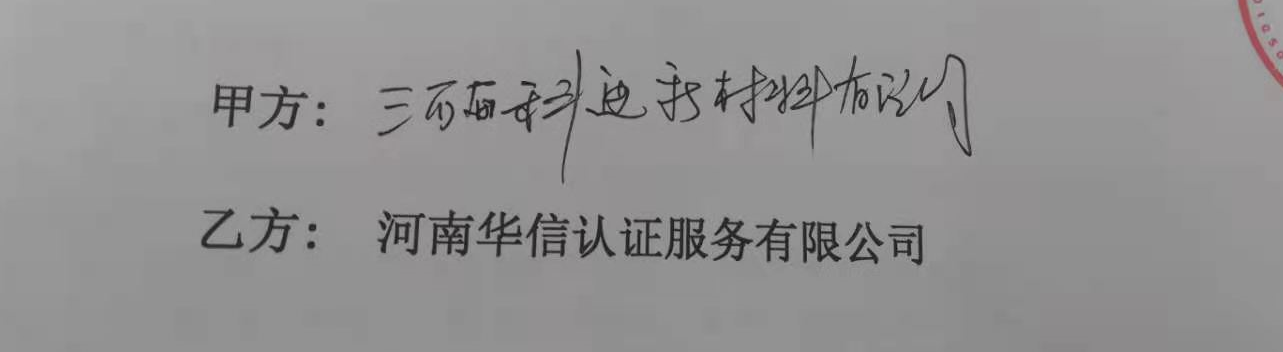 甲方： 三百科迪新材料有限公司
乙方： 河南华信认证服务有限公司